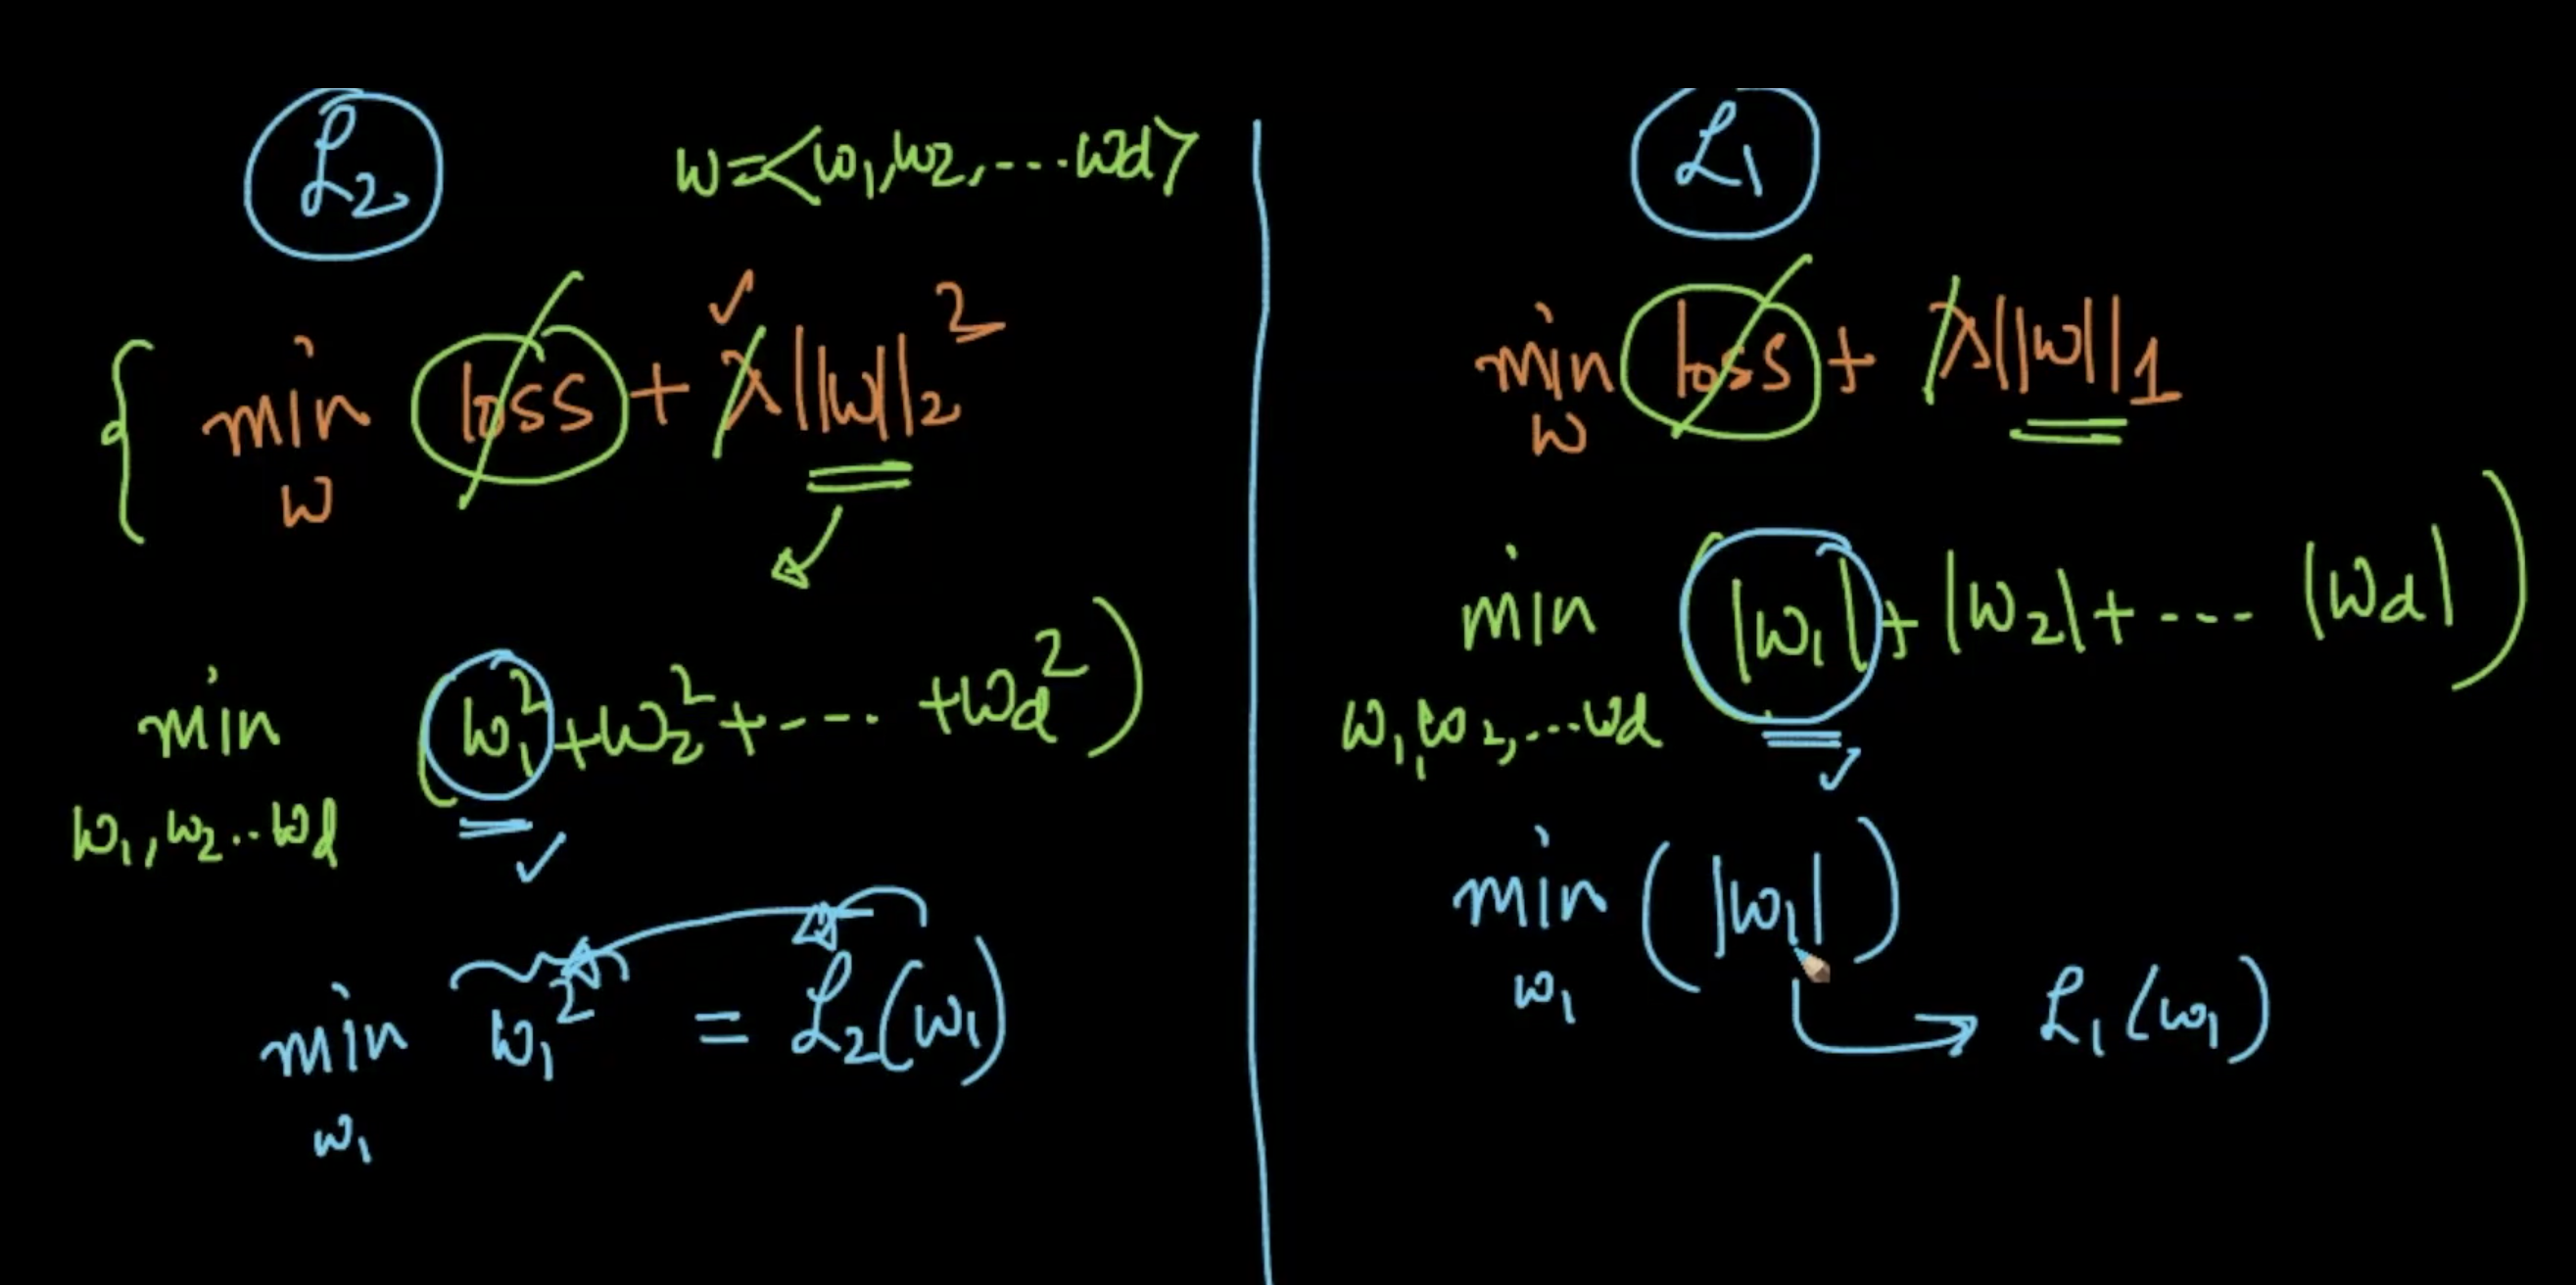 L₂
w=<w₁,w₂,...wd>
min loss + λ||w||₂²
w
min (w₁²+w₂²+---- +wd²)
w₁,w₂..wd
min w₁² = L₂(w₁)
w₁
L₁
min loss + λ||w||₁
w
min (|w₁|+|w₂|+---- |wd|)
w₁,w₂,...wd
min (|w₁|)
w₁
L₁(w₁)